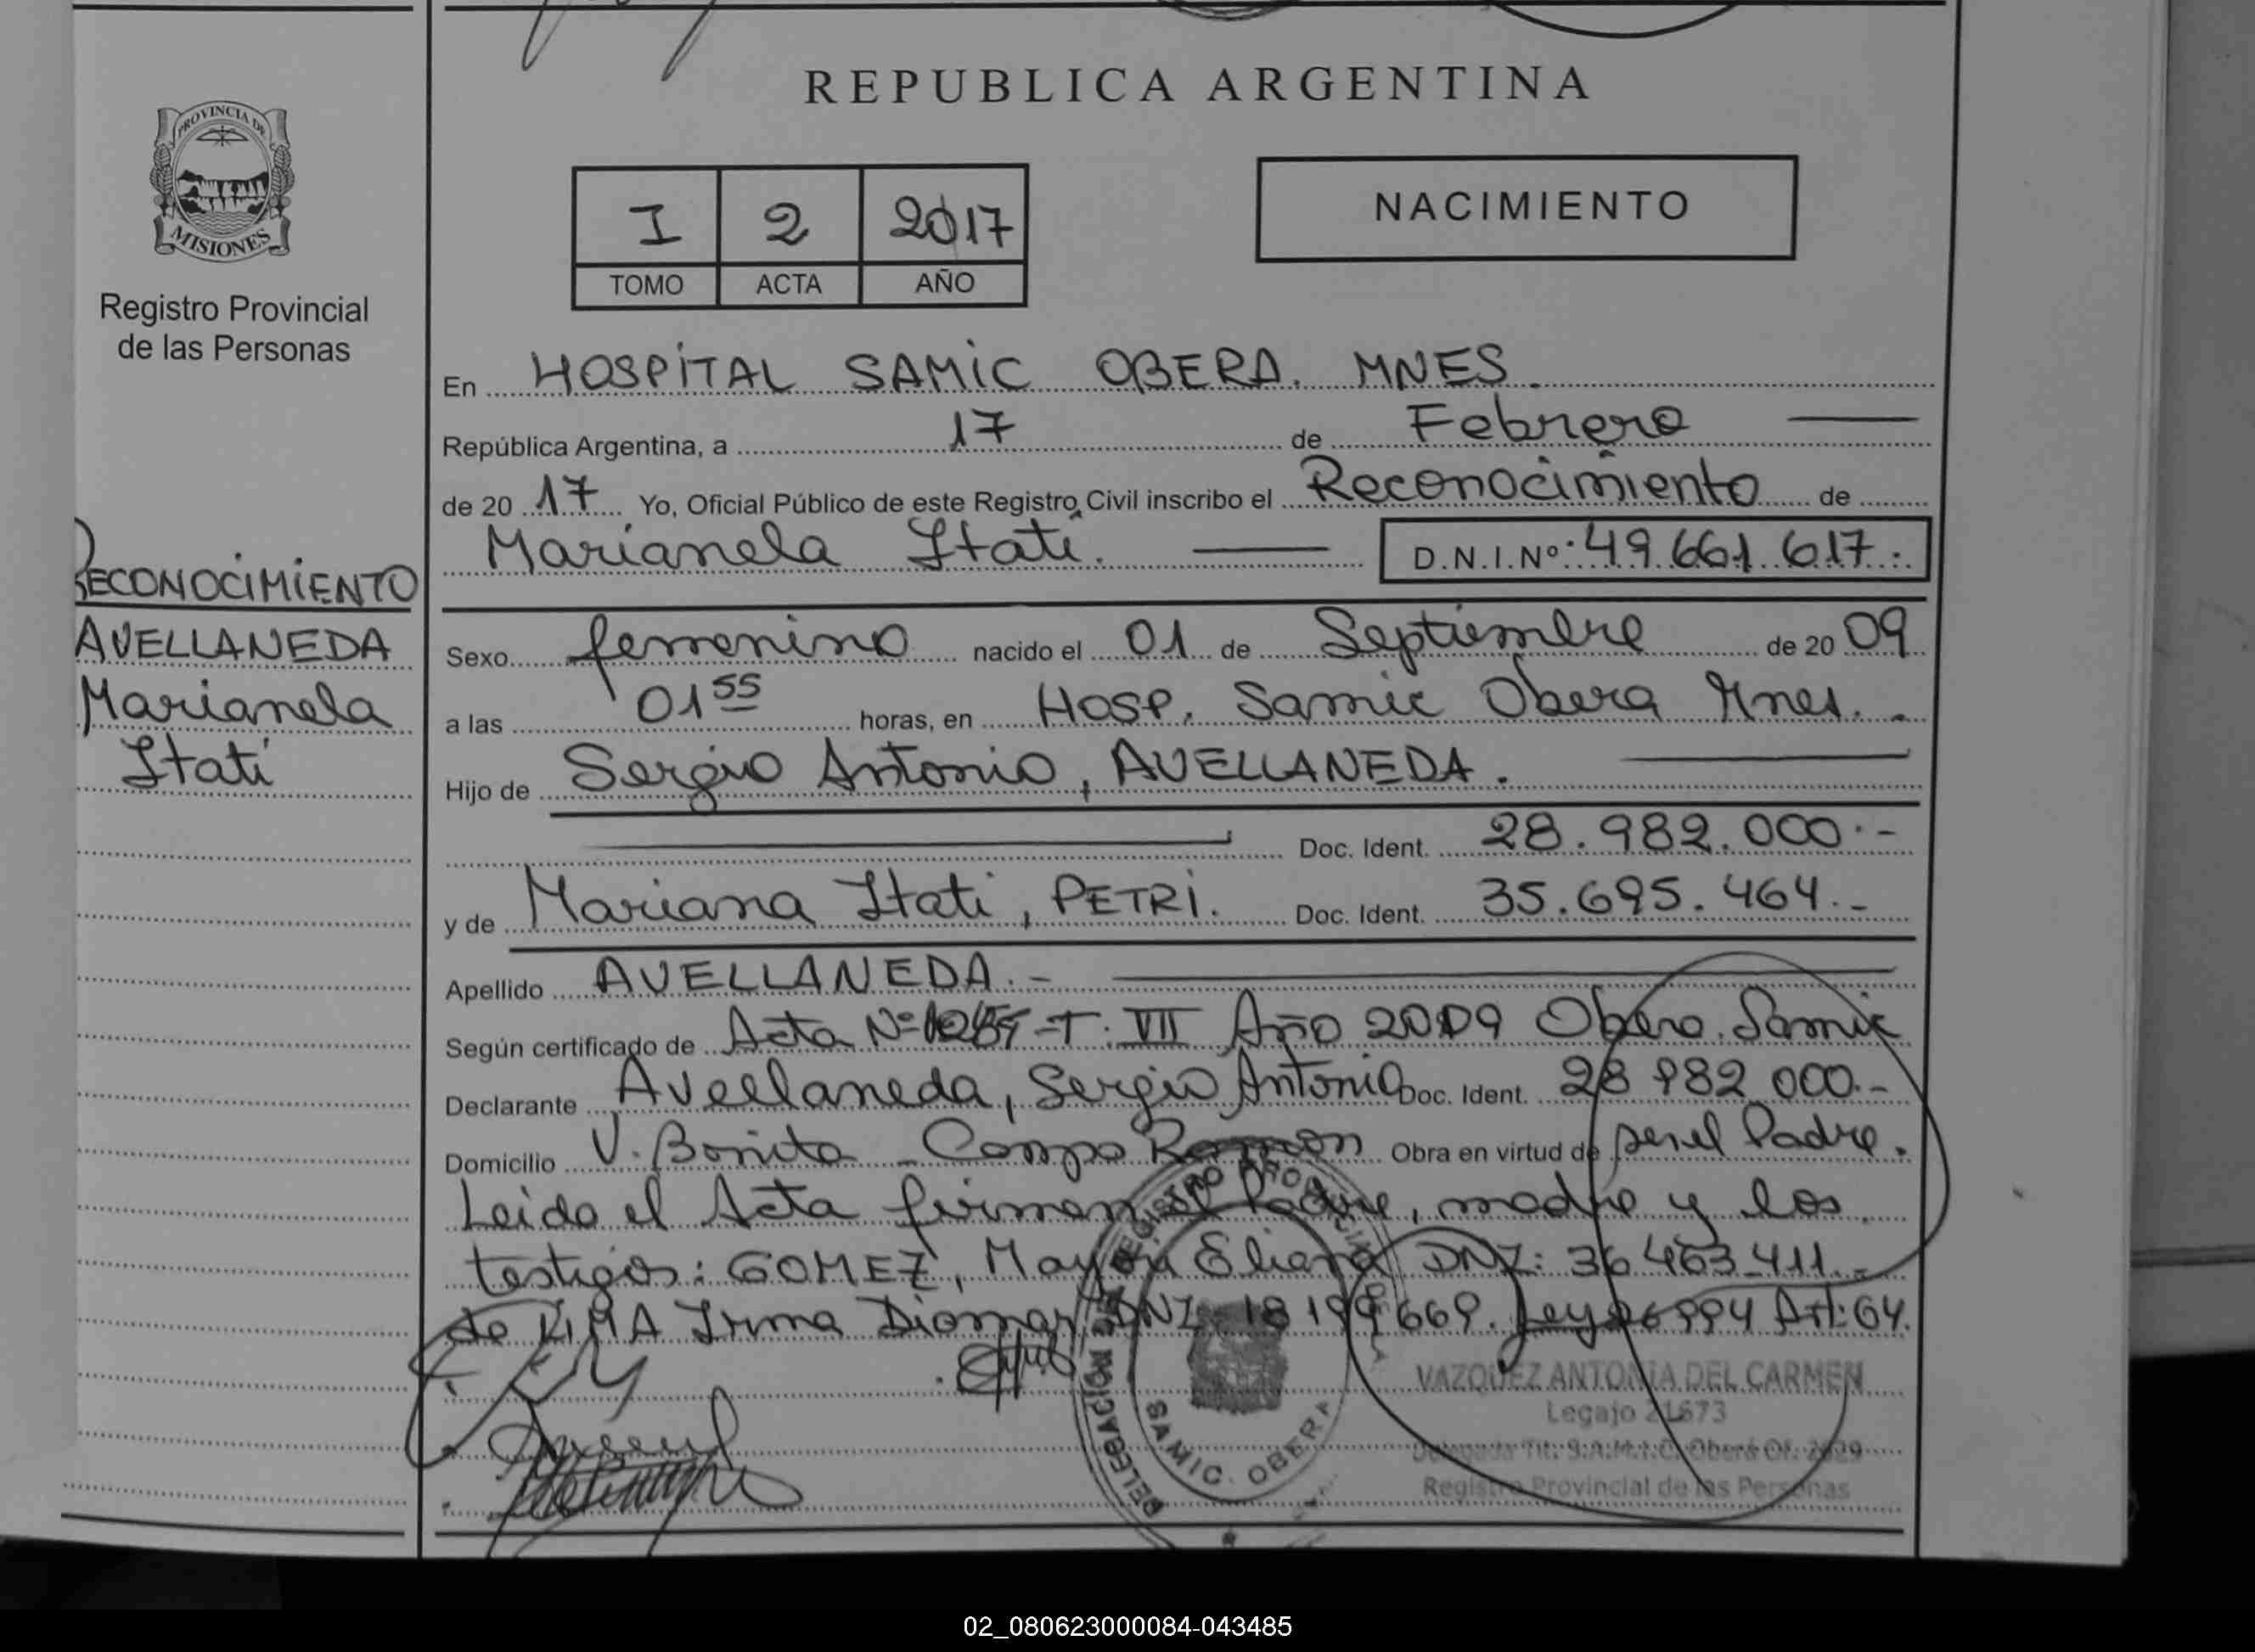 REPUBLICA ARGENTINA
PROVINCIA DE
MISIONES
Registro Provincial
de las Personas
I 2 2017
TOMO ACTA AÑO
NACIMIENTO
En HOSPITAL SAMIC OBERA. MNES.
República Argentina, a 17 de Febrero
de 2017 Yo, Oficial Público de este Registro Civil inscribo el Reconocimiento de
Marianela Itatí. D.N.I.Nº: 49.661.617.
RECONOCIMIENTO
AVELLANEDA
Marianela
Itatí
Sexo femenino nacido el 01 de Septiembre de 2009
a las 01 55 horas, en Hosp. Samic Obera Mnes.
Hijo de Sergio Antonio, AVELLANEDA.
Doc. Ident. 28.982.000.-
y de Mariana Itati, PETRI. Doc. Ident. 35.695.464.-
Apellido AVELLANEDA.-
Según certificado de Acta Nº -T. VII Año 2009 Obera. Samic
Declarante Avellaneda, Sergio Antonio Doc. Ident. 28 982 000.-
Domicilio V. Bonita - Campo Ramon Obra en virtud de ser el Padre.
Leido el Acta firman el Padre, madre y los
testigos: GOMEZ, Eliana DNI: 36 463 411.-
de LIMA Irma Diomar DNI 18 199 669. Ley 26994 Art: 64.
VAZQUEZ ANTONIA DEL CARMEN
Legajo 21673
Delegada Tit. S.A.M.I.C. Oberá Of. 2029
Registro Provincial de las Personas
DELEGACION
SAMIC. OBERA
02_080623000084-043485